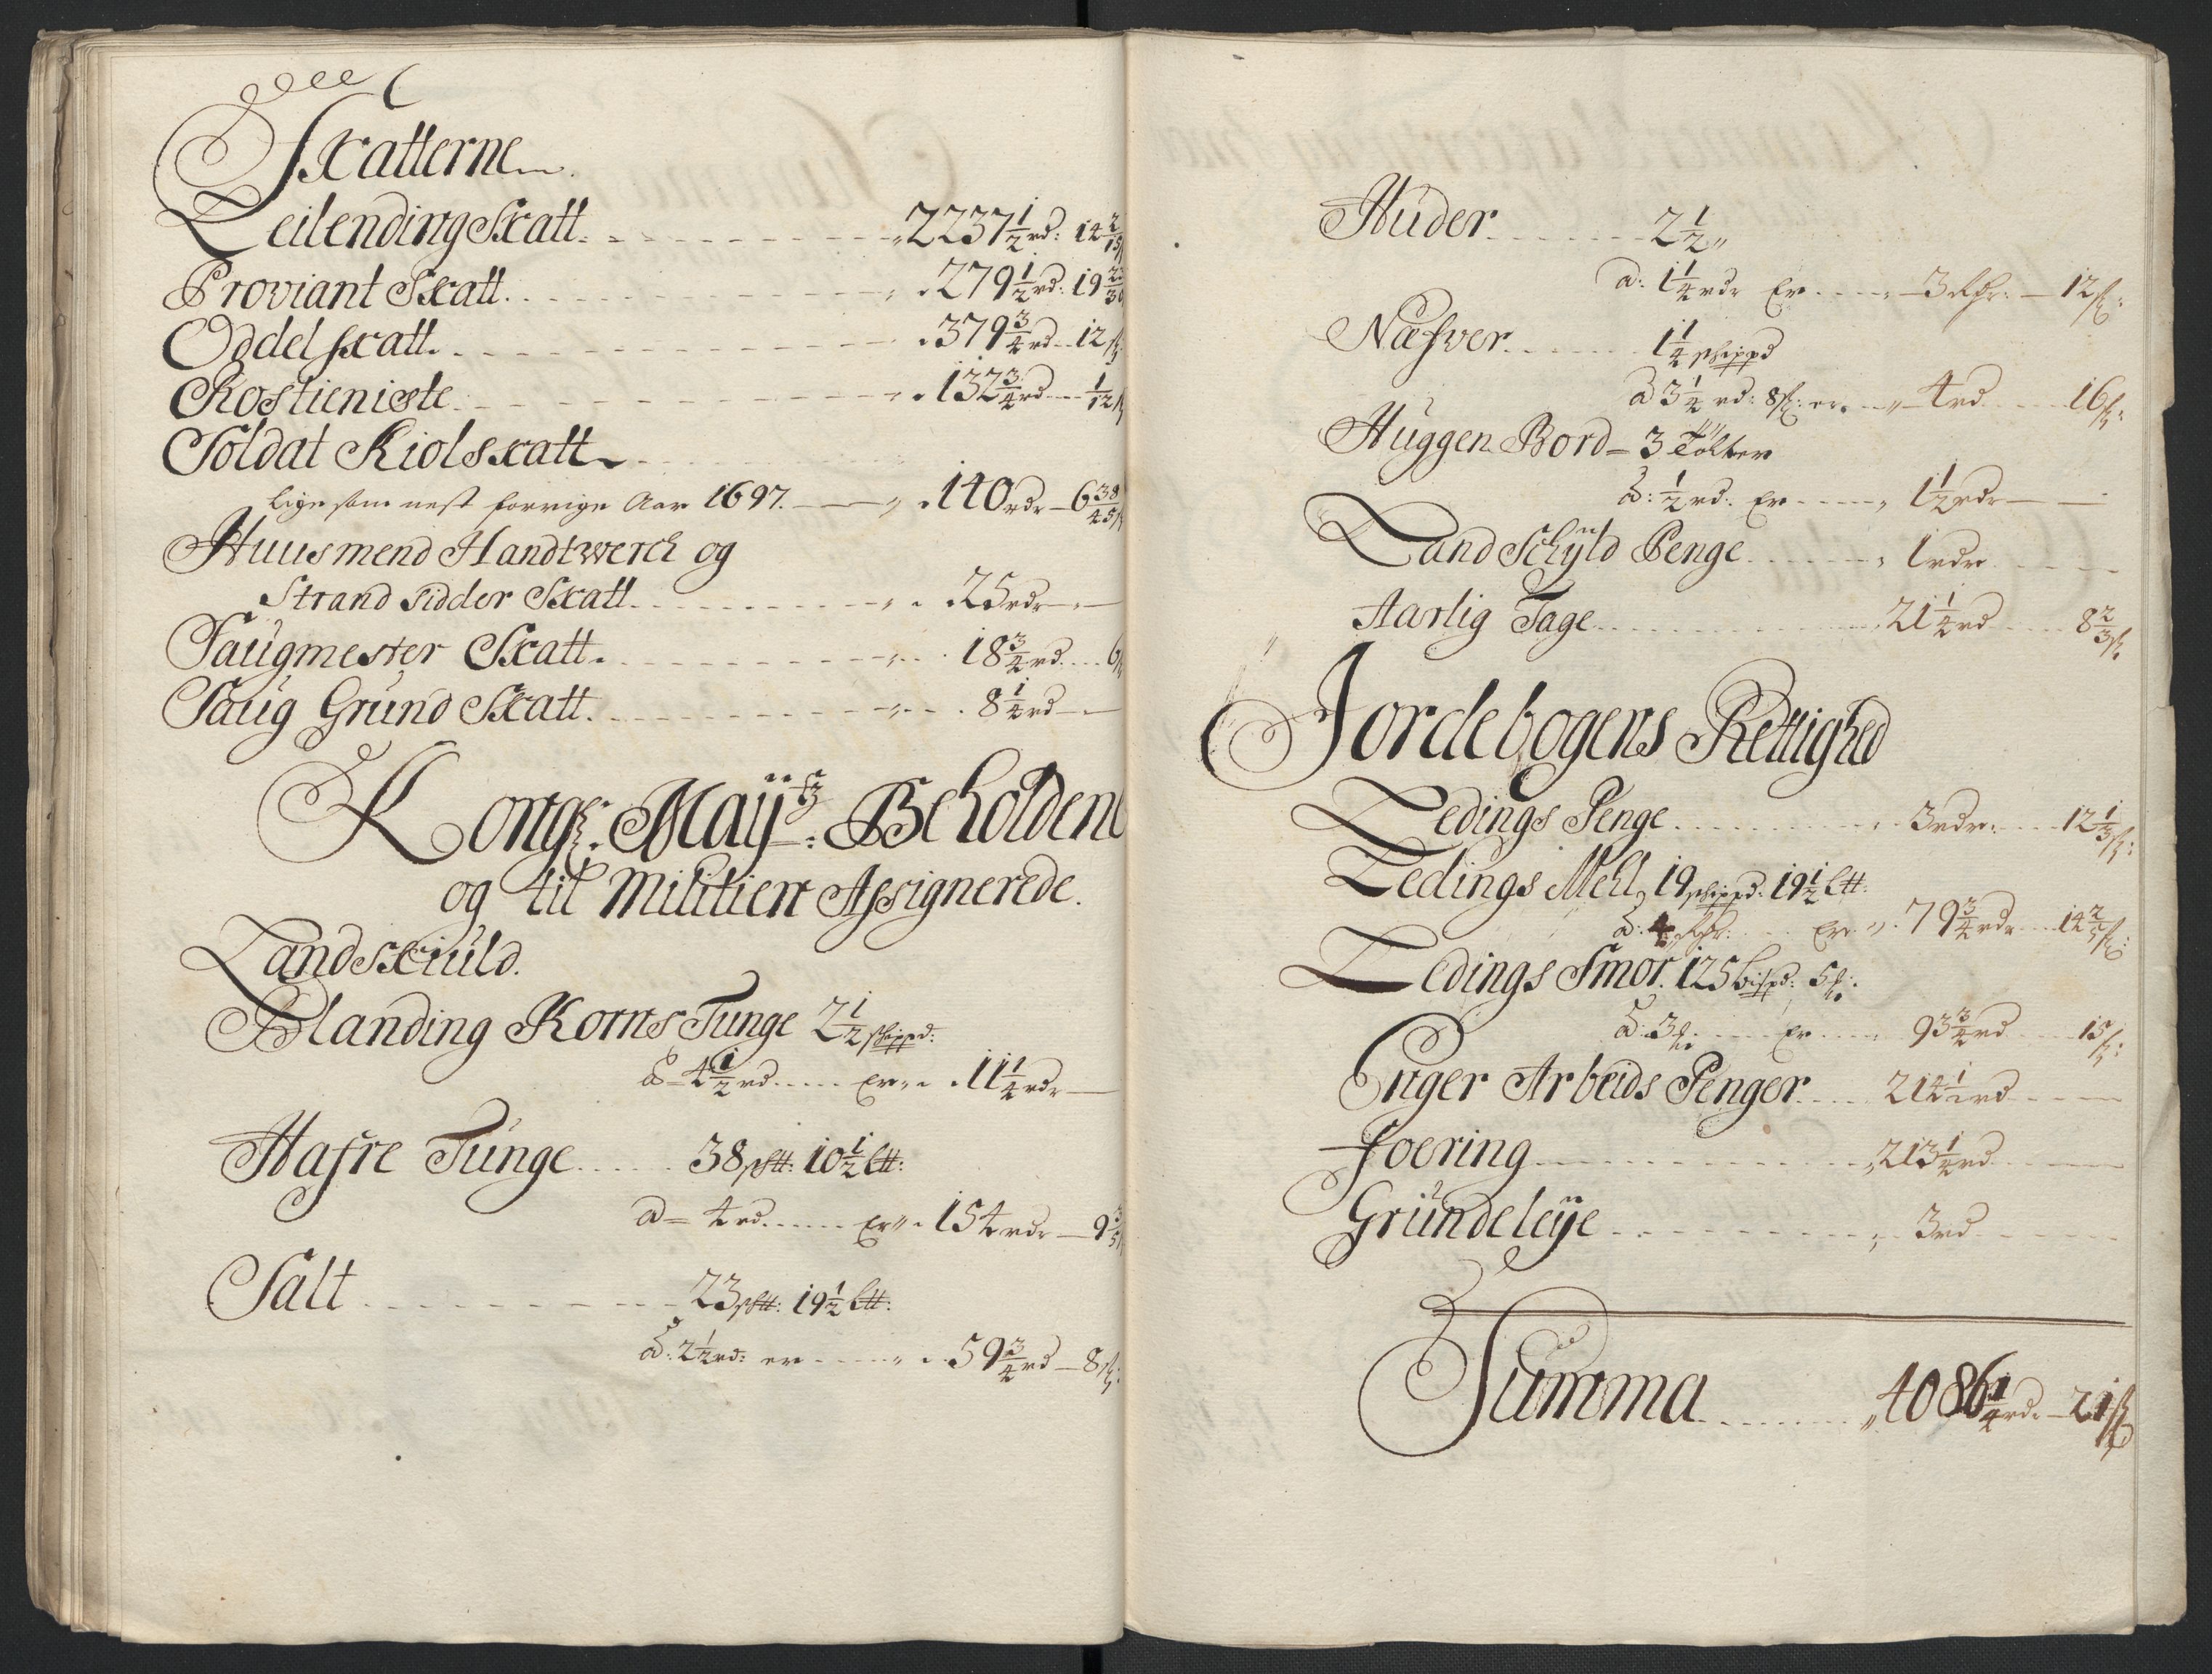 Skatterne
Leilending Skatt 2237½ rd: 14 2/15
Proviant Skatt 279½ rd: 19 23/30
Oddel skatt 379¾ rd 12 s
Rostieniste 132¾ rd 1/12 s
Soldat Kiolskatt
ligesom nest forrige Aar 1697. 140 rdr 6 38/45
Huusmend Handtwerch og
Strand sidder Skatt 25 rdr
Saugmester Skatt 18¾ rd 6
Saug Grund Skatt 8¼ rd
Kongl: Maÿts: Beholdene
og til Militien Assignerede.
Landskiuld.
Blanding Korns Tunge 2½ skippd:
a 4½ rd Er 11¼ rdr
Hafre Tunge 38 stt: 10½ ltt:
a 4 rd Er 154 rdr 9 3/5
Salt 23 stt: 19½ ltt:
a: 2½ rd: er 59¾ rd 8 s:
Huder 2½
a: 1¼ rdr Er 3 Rdr: 12 s:
Næfver 1¼ skippd
a 3½ rd: 8 s: er 4 rd 16 s:
Huggen Bord 3 Tölter
a: ½ rd: Er 1½ rdr
Land Schÿld Penge 1 rdr
Aarlig Tage 21¼ rd 8 2/3 s
Jordebogens Rettighed
Ledings Penge 3 rdr: 12 1/3 s:
Ledings Mehl 19 skippd: 19½ ltt:
a: 4 Rdr: Er 79¾ rdr 14 2/5 s:
Ledings Smör. 125 bispd:
a: 3 Er 93¾ rd 15 s:
Enger Arbeids Penger 214½ rd
Foering 213½ rd
Grundeleÿe 3 rd
Summa 4086¼ rd. 21 s